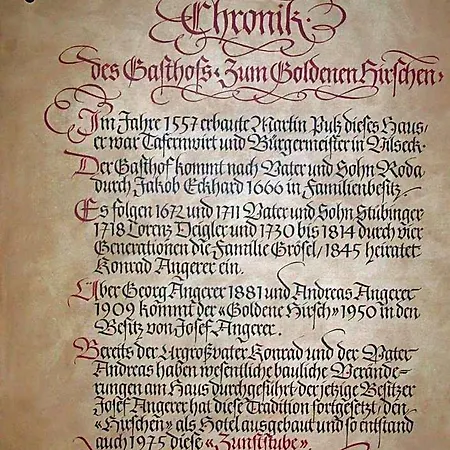 Chronik
des Gasthofs «Zum Goldenen Hirschen»
Im Jahre 1557 erbaute Martin Puk dieses Haus,
er war Tafernwirt und Bürgermeister in Vilseck.
Der Gasthof kommt nach Vater und Sohn Roda
durch Jakob Eckhard 1666 in Familienbesitz.
Es folgen 1672 und 1711 Vater und Sohn Stübinger
1718 Lorenz Deigler und 1730 bis 1814 durch vier
Generationen die Familie Grösel, 1845 heiratet
Konrad Angerer ein.
Über Georg Angerer 1881 und Andreas Angerer
1909 kommt der «Goldene Hirsch» 1950 in den
Besitz von Josef Angerer.
Bereits der Urgroßvater Konrad und der Vater
Andreas haben wesentliche bauliche Verände-
rungen am Haus durchgeführt der jetzige Besitzer
Josef Angerer hat diese Tradition fortgesetzt, den
«Hirschen» als Hotel ausgebaut und so entstand
auch 1975 diese «Zunftstube».